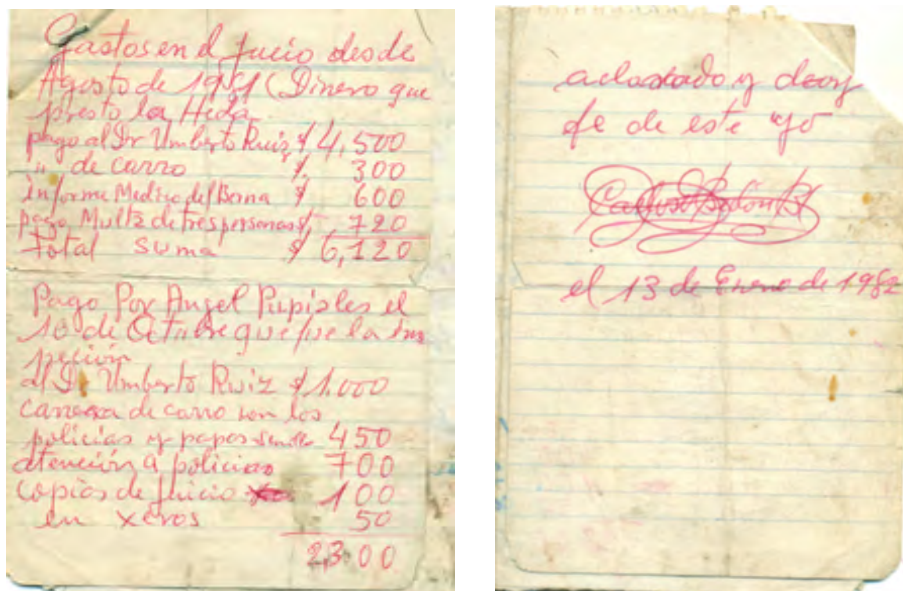 Gastos en el juicio desde
Agosto de 1981 (Dinero que
presto la Hcda.
pago al Dr Umberto Ruiz $ 4,500
" de carro $, 300
informe Medico del Berna $ 600
pago Multa de tres personas $ 720
Total suma $ 6,120
Pago Por Angel Pupiales el
10 de Octubre que fue la ins
peción
al Dr Umberto Ruiz $ 1.000
carrera de carro con los
policias y papos 450
atención a policias 700
copias de juicio 100
en xeros 50
2,300
aclarado y doy
fe de este "yo
el 13 de Enero de 1982